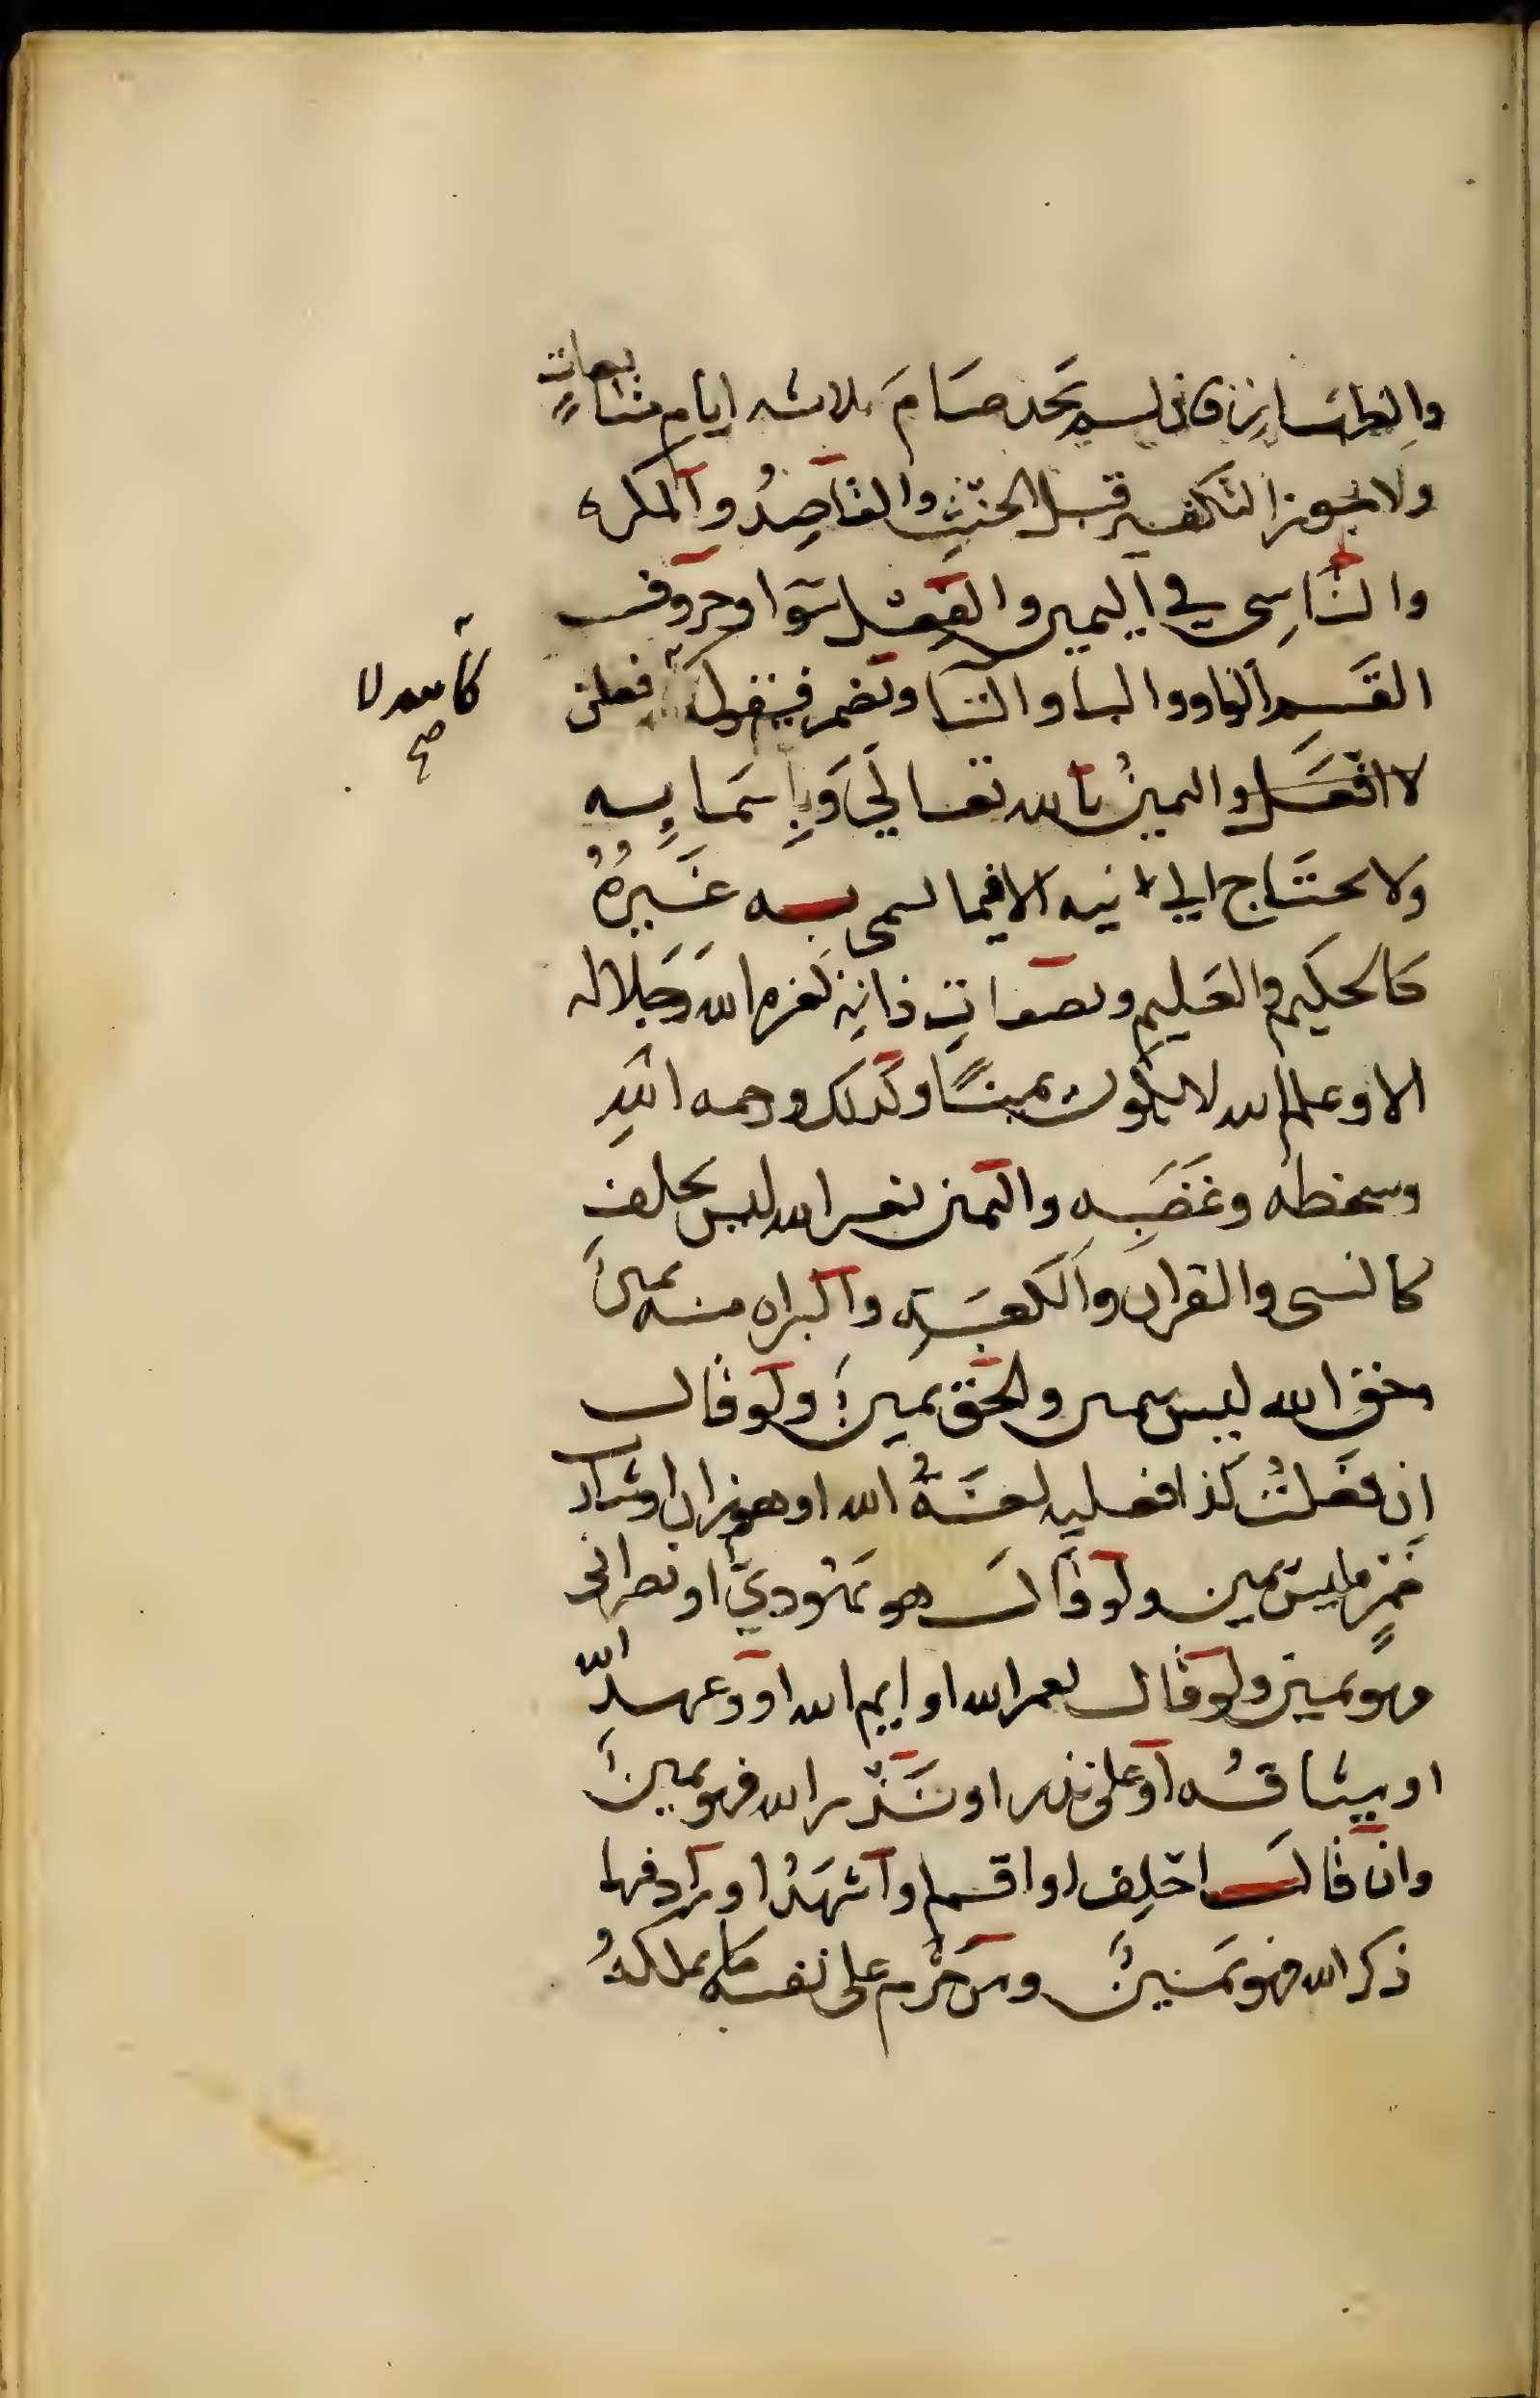 والطهارة فان لم يجد صام ثلاثه ايام متتابعاتٍ
ولا يجوز التكفير قبل الحنثِ والقاصِدُ والمكره
والناسِى في اليمين والفعل سَوا وحروف
القَسم الواو والبا والتا وتضمر فيقول فعلن
كالله لا
صح
لا افعَل واليمينُ بالله تعالىَ وَبِاسمَايِه
ولا يحتَاج الى نيه الا فيما يسمى به غَيرُهُ
كالحكيم والعَليم وبصفاتِ ذاتِه كعزه الله وَجَلاله
الا وعلم الله لا يكون يمينًا وكذلك ورحمه اللهِ
وسخطه وغَضَبِه واليمين بغير الله ليس بحلفٍ
كالنبى والقران والكعبَةِ والبراه منه يمينٌ
وحقِ الله ليس بيمين والحق يمينٌ ولو قال
اِن فعَلتُ كذا فعليه لعنَةُ الله او هو زان او شارب
خمرٍ فليسَ بيمين ولو قال هو يَهُودىّ او نصرانى
فهو يمين ولو قال لعمر الله او ايم الله او وعهد الله
او ميثاقُه او علَى نذر او نَذْر الله فهو يمينٌ
وان قالَ احْلِف او اقسم او اشهَدُ او زاد فيها
ذكر الله فهو يَمينٌ ومن حَرّم على نفسه مَا يملكهُ